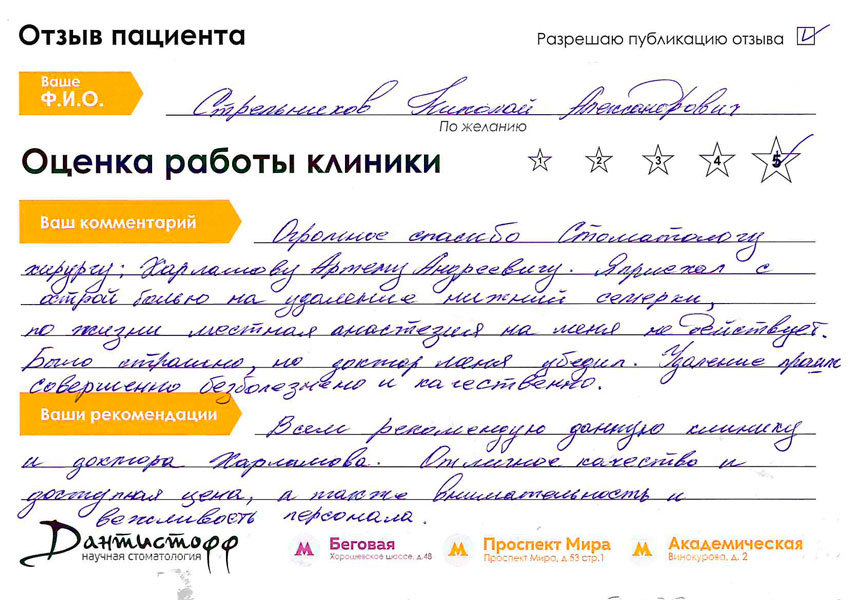 Отзыв пациента
Разрешаю публикацию отзыва
Ваше
Ф.И.О.
Стрельников Николай Александрович
По желанию
Оценка работы клиники
1 2 3 4 5
Ваш комментарий
Огромное спасибо Стоматологу
хирургу: Харламову Артему Андреевичу. Я приехал с
острой болью на удаление нижний семерки,
по жизни местная анастезия на меня не действует.
Было страшно, но доктор меня убедил. Удаление прошло
совершенно безболезнено и качественно.
Ваши рекомендации
Всем рекомендую данную клинику
и доктора Харламова. Отличное качество и
доступная цена, а также внимательность и
вежливость персонала.
Дантистофф
научная стоматология
Беговая
Хорошевское шоссе, д.48
Проспект Мира
Проспект Мира, д.53 стр.1
Академическая
Винокурова, д. 2